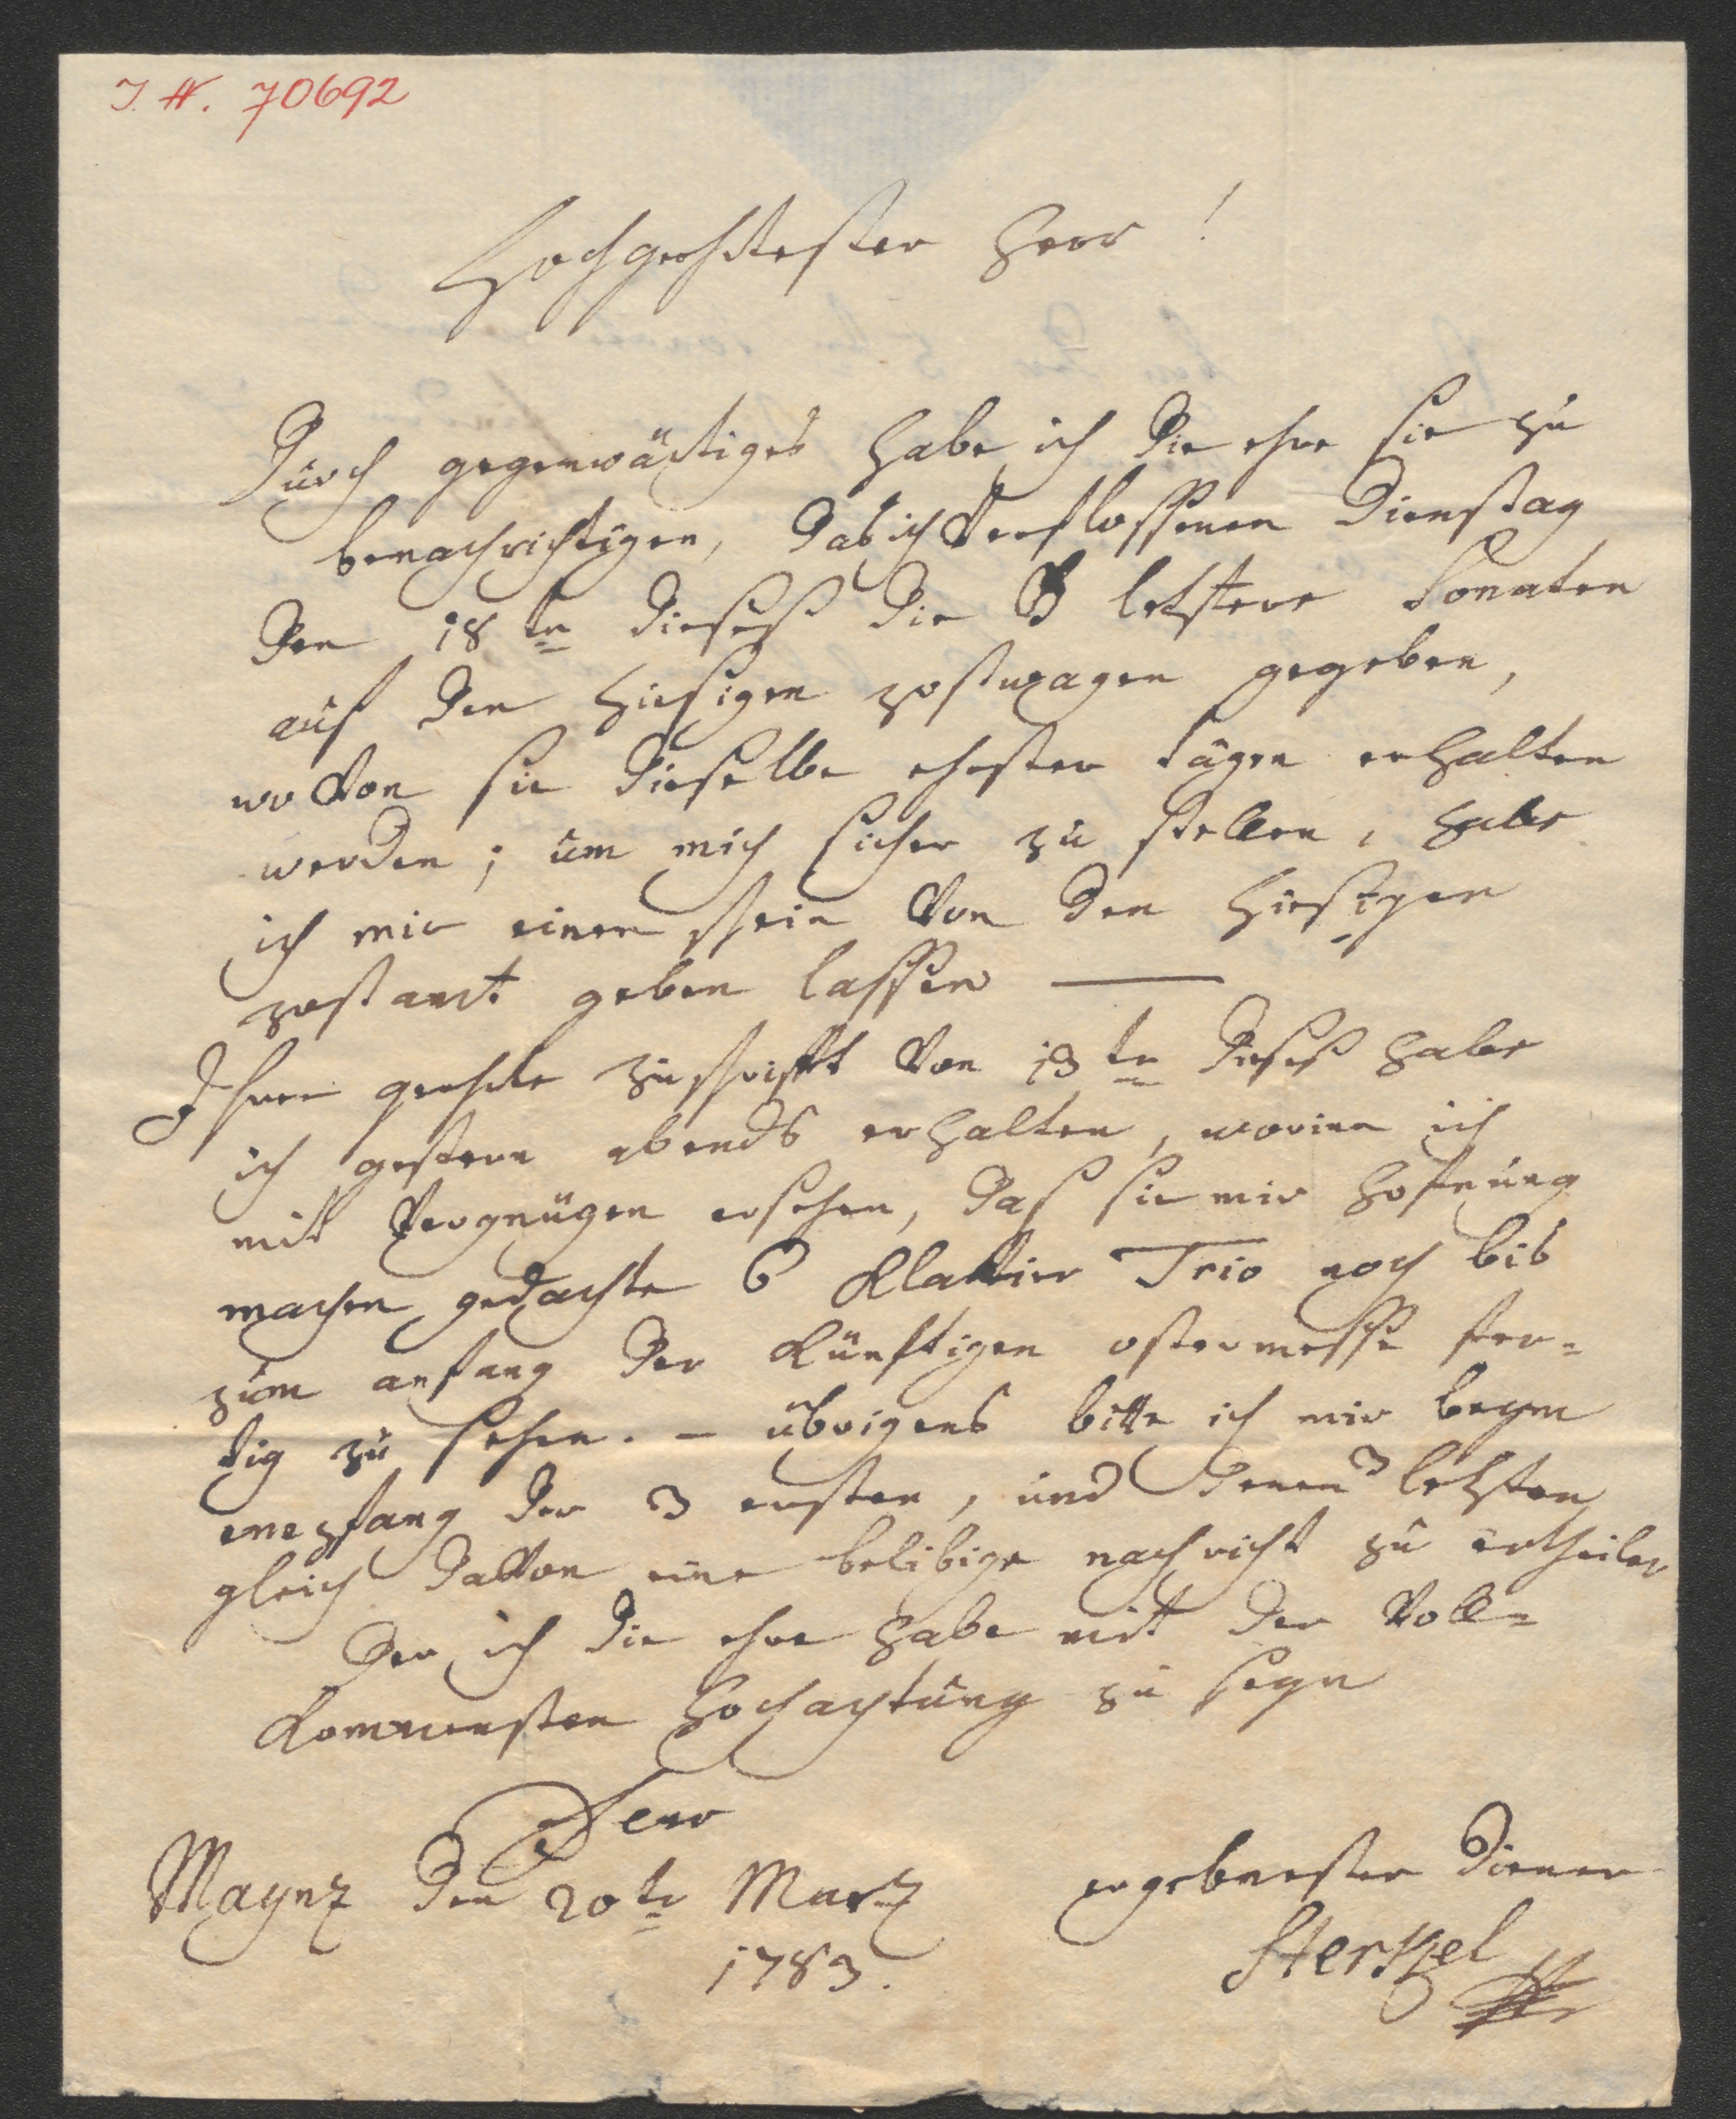 J. N. 70692
Hochgeehrtester Herr!
Durch gegenwärtiges habe ich die ehre sie zu
benachrichtigen, das ich verflossenen Dienstag
den 18ten dieses die 3 letztere Sonaten
auf den hiesigen postwagen gegeben,
wo von sie dieselbe ehester tägen erhalten
werden; um mich sicher zu stellen, habe
ich mir einen schein von den hiesigen
postamt geben lassen —
Ihre geehrte zuschrifft von 13ten dieses habe
ich gestern abends erhalten, worinn ich
mit vergnügen ersehen, daß sie mir hofnung
machen gedachte 6 Klavier Trio noch bis
zum anfang der künftigen ostermesse fer=
tig zu sehen. – übrigens bitte ich mir beym
empfang der 3 ersten, und denen 3 letzten
gleich davon eine belibige nachricht zu ertheilen
Der ich die ehre habe mit der voll=
kommensten hochachtung zu seyn
Dero
Maynz den 20te Marz ergebenster Diener
1783. Sterkel